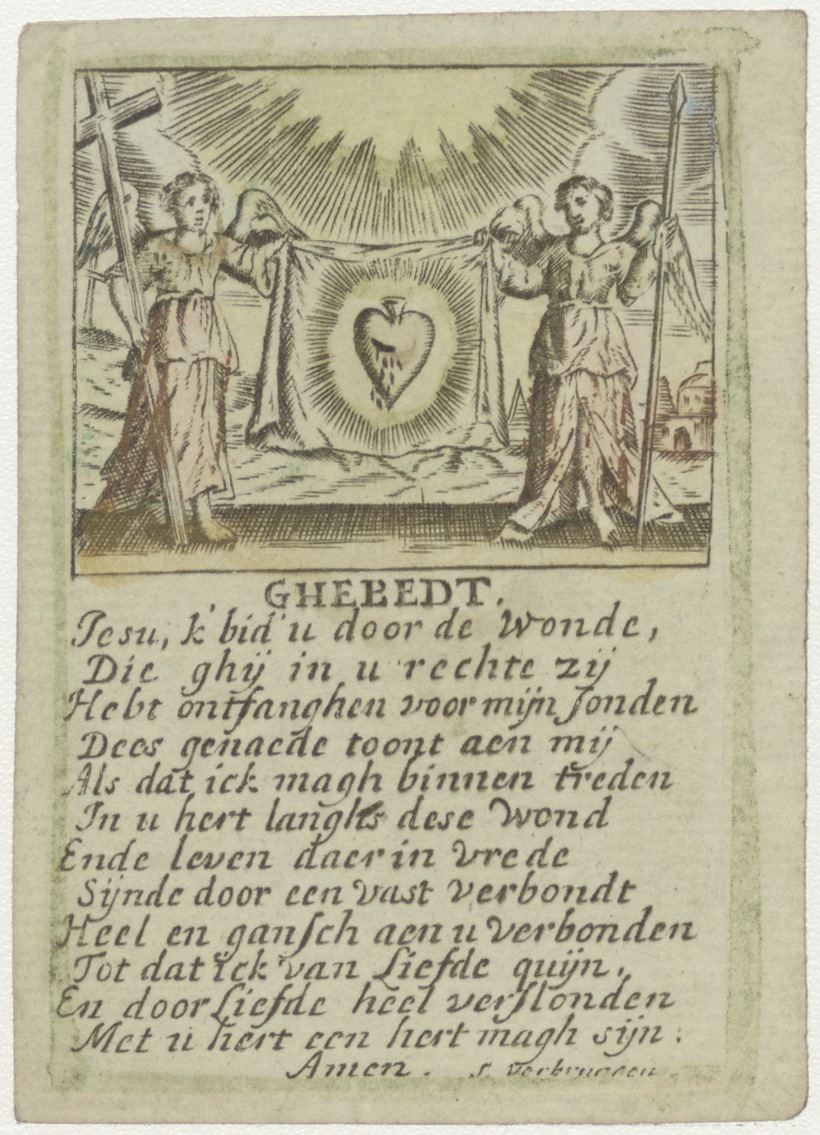 GHEBEDT.
Jesu, k' bid' u door de Wonde,
Die ghij in u rechte zij
Hebt ontfanghen voor mijn Sonden
Dees genaede toont aen mij
Als dat ick magh binnen treden
In u hert langhs dese Wond
Ende leven daer in Vrede
Sijnde door een vast Verbondt
Heel en gansch aen u Verbonden
Tot dat ick van Liefde quijn,
En door Liefde heel verslonden
Met u hert een hert magh sijn:
Amen. s. Verbruggen